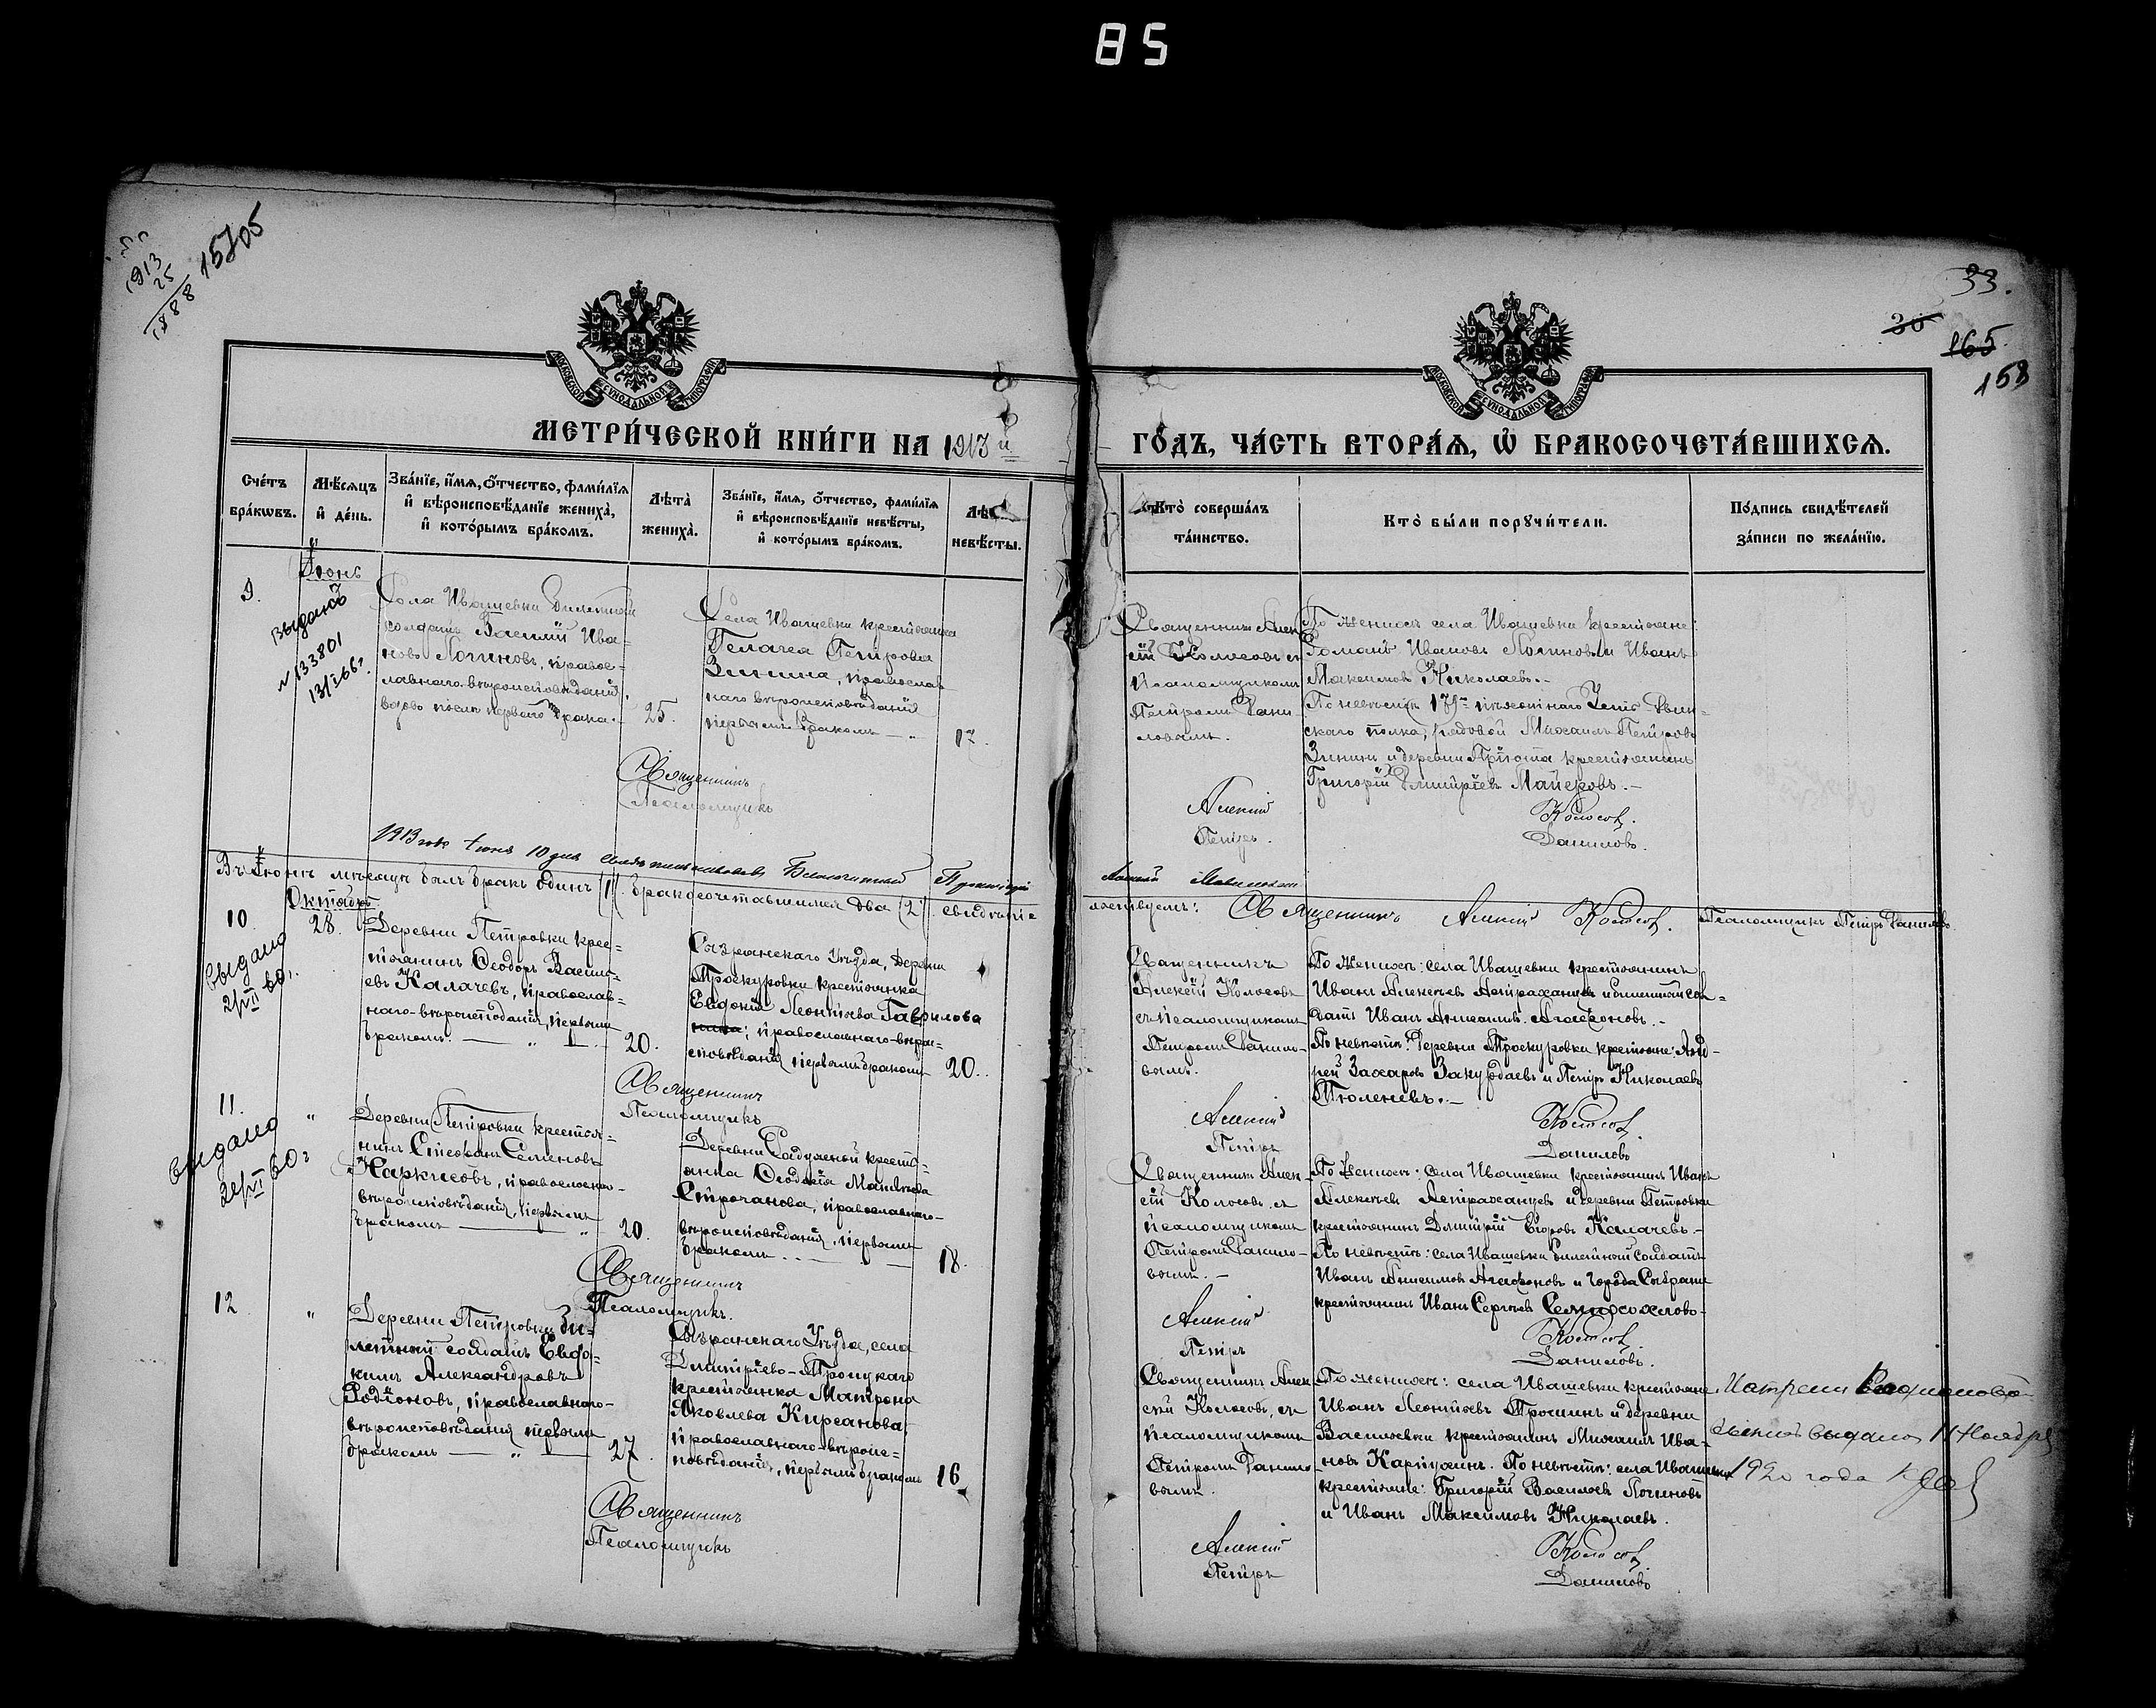 85
1913
25
1888
15705
33.
30
165
158
МОСКОВСКОЙ СѴНОДАЛЬНОЙ ТИПОГРАФІИ
МОСКОВСКОЙ СѴНОДАЛЬНОЙ ТИПОГРАФІИ
МЕТРИ́ЧЕСКОЙ КНИ́ГИ НА 1913й
ГО́ДЪ, ЧА́СТЬ ВТОРА́Я, Ѡ҆ БРАКОСОЧЕТА́ВШИХСЯ.
Сче́тъ бра́кѡвъ.
Мѣ́сяцъ и҆ де́нь.
Зва́нїе, и҆́мя, ѻ҆́тчество, фами́лїя и҆ вѣроисповѣ́данїе жениха̀, и҆ кото́рымъ бра́комъ.
Лѣта̀ жениха̀.
Зва́нїе, и҆́мя, ѻ҆́тчество, фами́лїя и҆ вѣроисповѣ́данїе невѣ́сты, и҆ кото́рымъ бра́комъ.
невѣ́сты.
Кто̀ соверша́лъ та́инство.
Кто̀ бы́ли порꙋчи́тели.
По́дпись свидѣ́телей за́писи по жела́нїю.
9.
Іюнь
выдано
№ 133801
Села Ивашевки билетный
солдатъ Василій Ива-
новъ Логиновъ, правос-
лавнаго вѣроисповѣданія,
вдовъ послѣ перваго брака.
25.
Села Ивашевки крестьянка
Пелагея Петрова
Зинина, православ-
наго вѣроисповѣданія
первымъ бракомъ
17.
Священникъ Алек-
сій Колосовъ съ
псаломщикомъ
Петромъ Дани-
ловымъ.
По женихѣ: села Ивашевки крестьяне:
Романъ Ивановъ Логиновъ и Иванъ
Максимовъ Николаевъ.
По невѣстѣ
скаго полка, рядовой Михаилъ Петровъ
Зининъ и деревни крестьянинъ
Григорій Дмитріевъ Майеровъ.
Священникъ Алексій Колосовъ.
Псаломщикъ Петръ Даниловъ.
Въ Іюнѣ мѣсяцѣ былъ бракъ одинъ (1). бракосочетавшихся два (2). свидѣтель-
ствуемъ: Священникъ Алексій Колосовъ. Псаломщикъ Петръ Даниловъ
10.
Октябрь
28.
Выдано
2/VII 60г.
Деревни Петровки крес-
тьянинъ Ѳеодоръ Василь-
евъ Калачевъ, православ-
наго вѣроисповѣданія, первымъ
бракомъ.
20.
Сызранскаго Уѣзда, деревни
Троекуровки крестьянка
Евдокія Леонтьева Гаврилова
православнаго вѣрои-
сповѣданія первымъ бракомъ
20.
Священникъ
Алексій Колосовъ
съ псаломщикомъ
Петромъ Данило-
вымъ.
По женихѣ: села Ивашевки крестьянинъ
Иванъ Алексѣевъ Астраханцев и билетный сол-
датъ Иванъ Анисимовъ Агафоновъ.
По невѣстѣ: Деревни Троекуровки крестьяне: Анд-
рей Захаровъ Закурдаевъ и Петръ Николаевъ
Тюленевъ.
Священникъ Алексій Колосовъ.
Псаломщикъ Петръ Даниловъ
11.
Выдано
Деревни Петровки крестья-
нинъ Стефанъ Семеновъ
Наркисовъ, православнаго
вѣроисповѣданія, первымъ
бракомъ
20.
Деревни крестъ-
янка Ѳеодосія Матвѣева
Строганова, православнаго
вѣроисповѣданія, первымъ
бракомъ.
18.
Священникъ Алек-
сій Колосовъ, съ
псаломщикомъ
Петромъ Данило-
вымъ.
По женихѣ: села Ивашевки крестьянинъ Иванъ
Алексѣевъ Астраханцев и деревни Петровки
крестьянинъ Дмитрій Егоровъ Калачевъ.
По невѣстѣ: села Ивашевки билетный солдатъ
Иванъ Анисимовъ Агафоновъ и города Сызрани
крестьянинъ Иванъ Сергѣевъ
Священникъ Алексій Колосовъ.
Псаломщикъ. Петръ Даниловъ.
12
Деревни Петровки би-
летный солдатъ Евдо-
кимъ Александровъ
Родіоновъ, православнаго
вѣроисповѣданія первымъ
бракомъ
27.
Сызранскаго Уѣзда, села
Дмитріево-Троицкаго
крестьянка Матрона
Яковлева Кирсанова,
православнаго вѣроис-
повѣданія, первымъ бракомъ
16.
Священникъ Алек-
сій Колосовъ, съ
псаломщикомъ
Петромъ Данило-
вымъ.
По женихѣ: села Ивашевки крестьяне
Иванъ Леонтьевъ Трошинъ и деревни
Васильевки крестьянинъ Михаилъ Ива-
новъ Карпухинъ. По невѣстѣ: села Ивашевки
крестьяне: Григорій Васильевъ Логиновъ
и Иванъ Максимовъ Николаевъ.
выдано 11 Ноября
1920 года
Священникъ Алексій Колосовъ.
Псаломщикъ Петръ Даниловъ